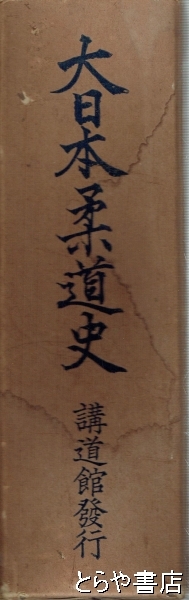 大日本柔道史
講道館發行
とらや書店